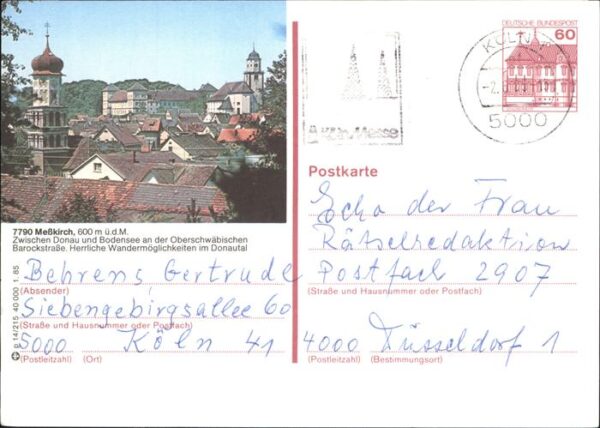 DEUTSCHE BUNDESPOST
60
KÖLN
5000
Köln Messe
Postkarte
7790 Meßkirch, 600 m ü.d.M.
Zwischen Donau und Bodensee an der Oberschwäbischen
Barockstraße. Herrliche Wandermöglichkeiten im Donautal
p 14/215 40 000 1.85
Behrens Gertrude
(Absender)
Siebengebirgsallee 60
(Straße und Hausnummer oder Postfach)
5000 Köln 41
(Postleitzahl) (Ort)
Echo der Frau
Rätselredaktion
Postfach 2907
(Straße und Hausnummer oder Postfach)
4000 Düsseldorf 1
(Postleitzahl) (Bestimmungsort)